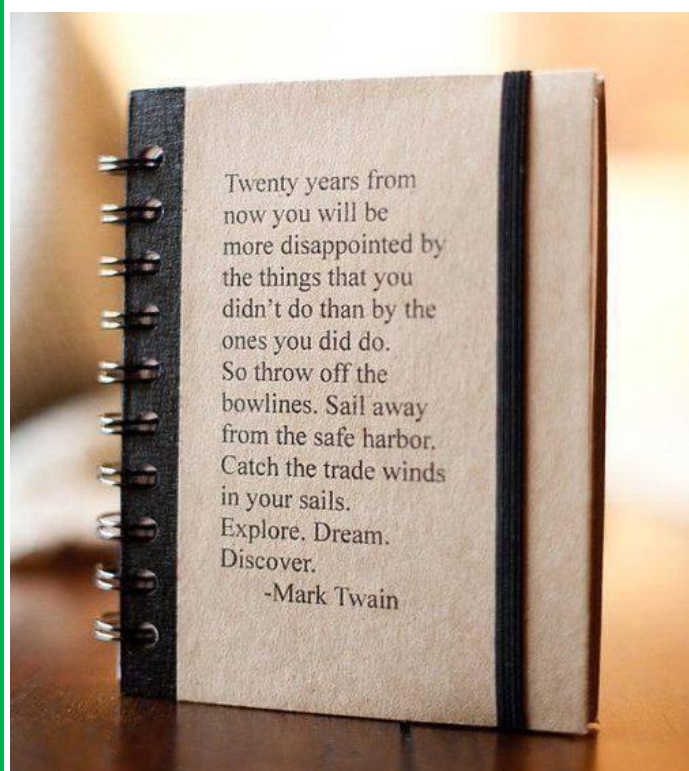 Twenty years from
now you will be
more disappointed by
the things that you
didn't do than by the
ones you did do.
So throw off the
bowlines. Sail away
from the safe harbor.
Catch the trade winds
in your sails.
Explore. Dream.
Discover.
-Mark Twain